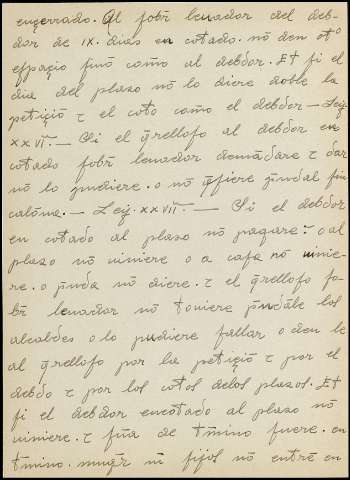 ençerrado. Al fobr̄ leuador del deb-
dor de IX. dias en cotado. nō den ot°
eſpaçio ſinō comō al debdor. Et ſi el
dia del plazo nō lo diere doble la
petiçiō τ el coto comō el debdor — Leij
xxvi. — Si el q̄rellofo al debdor en
cotado fobr̄ leuador demādare τ dar
nō lo pudiere. o nō q̄fiere p̄ndal fin
calōna. — Leij. xxvii. — Si el debdor
en cotado al plazo nō pagare. o al
plazo nō uiniere o a cafa nō uinie-
re. o p̄nda nō diere. τ el q̄rellofo fo-
br̄ leuador nō touiere p̄ndāle los
alcaldes o lo pudiere fallar o den le
al q̄rellofo por la petiçiō τ por el
debdo τ por los cotos delos plazos. Et
ſi el debdor encotado al plazo nō
uiniere. τ fūa de t̄mino fuere. en
t̄mino. muḡr ni fijos nō entrē en